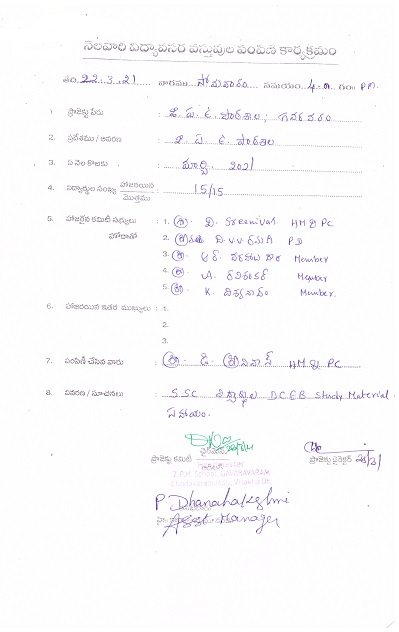 నెలవారి విద్యావసర వస్తువుల పంపిణి కార్యక్రమం
తేది 22.3.21 వారము సోమవారం సమయం 4.00 గం: PM
1. ప్రాజెక్టు పేరు : జి.ప.ఉ. పాఠశాల, గవరవరం
2. ప్రదేశము / వివరణ : జి.ప.ఉ. పాఠశాల
3. ఏ నెల కొఱకు : మార్చి 2021
4. విద్యార్థుల సంఖ్య హాజరయిన/మొత్తము : 15/15
5. హాజరైన కమిటీ సభ్యులు : 1. శ్రీ D. Sreenivas HM & PC
హోదాతో 2. D.V.V రమణి PD
3. శ్రీ ఆర్. Member
4. శ్రీ A. రవిశంకర్ Member
5. శ్రీ K. విశ్వనాధం Member.
6. హాజరయిన ఇతర ముఖ్యులు : 1.
2.
3.
7. పంపిణీ చేసిన వారు : శ్రీ డి. శ్రీనివాస్ HM & PC
8. వివరణ / సూచనలు : SSC విద్యార్థుల DCEB Study Material.
సహాయం.
ప్రాజెక్టు కమిటీ ఛైర్మన్
ప్రాజెక్టు డైరెక్టర్
Z.P.H. School, GAVARAVARAM
P. Dhanalakshmi
Asst Manager